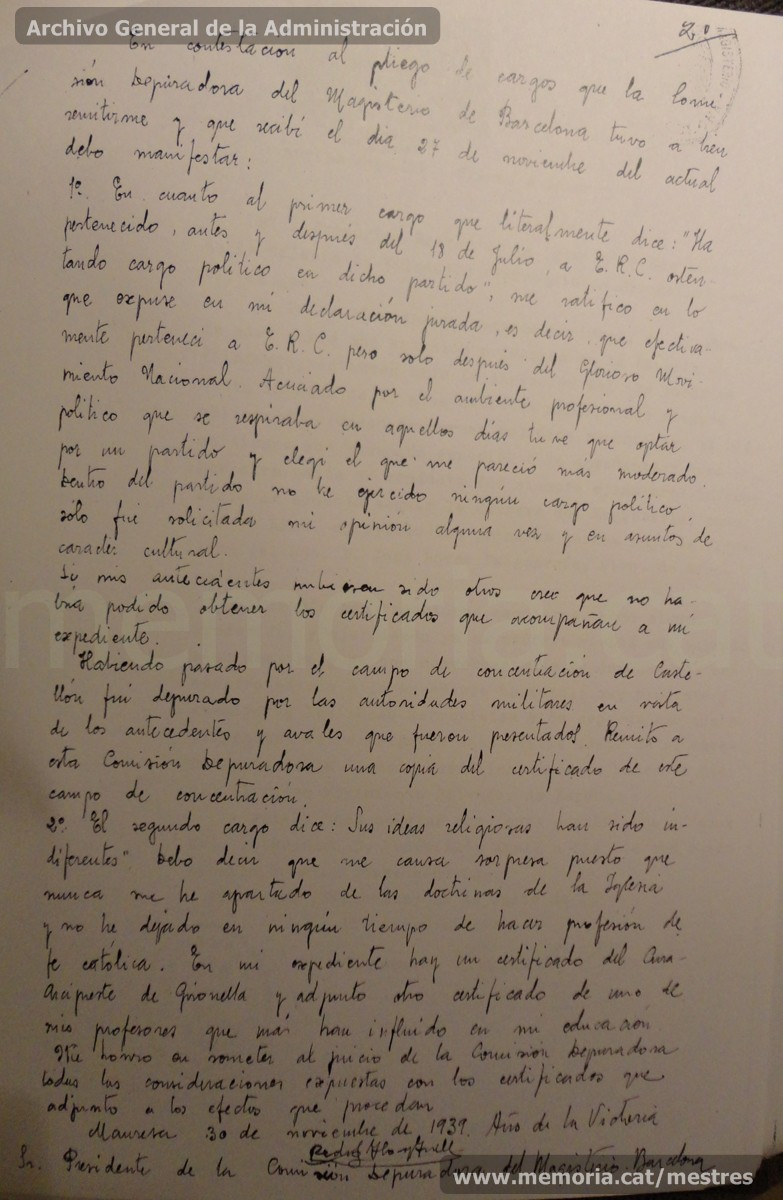 Archivo General de la Administración
2º
En contestación al pliego de cargos que la Comi
sión Depuradora del Magisterio de Barcelona tuvo a bien
remitirme y que recibí el dia 27 de noviembre del actual
debo manifestar:
1º. En cuanto al primer cargo que literalmente dice: "Ha
pertenecido, antes y después del 18 de Julio, a E.R.C. osten-
tando cargo político en dicho partido", me ratifico en lo
que expuse en mi declaración jurada, es decir, que efectiva-
mente pertenecí a E.R.C. pero solo después del Glorioso Movi-
miento Nacional. Acuciado por el ambiente profesional y
político que se respiraba en aquellos días tuve que optar
por un partido y elegí el que me pareció más moderado.
Dentro del partido no he ejercido ningún cargo político,
sólo fué solicitada mi opinión alguna vez y en asuntos de
caracter cultural.
Si mis antecedentes hubiesen sido otros creo que no ha-
bria podido obtener los certificados que acompañan a mi
expediente.
Habiendo pasado por el campo de concentración de Caste-
llón fuí depurado por las autoridades militares en vista
de los antecedentes y avales que fueron presentados. Remito a
esta Comisión Depuradora una copia del certificado de este
campo de concentración.
2º. El segundo cargo dice: Sus ideas religiosas han sido in-
diferentes" Debo decir que me causa sorpresa puesto que
nunca me he apartado de las doctrinas de la Iglesia
y no he dejado en ningún tiempo de hacer profesión de
fe católica. En mi expediente hay un certificado del Cura-
Arcipreste de Gironella y adjunto otro certificado de uno de
mis profesores que más han influído en mi educación.
Me honro en someter al juicio de la Comisión Depuradora
todas las consideraciones expuestas con los certificados que
adjunto a los efectos que procedan
Manresa 30 de noviembre de 1939. Año de la Victoria
Sr. Presidente de la Comisión Depuradora del Magisterio. Barcelona
www.memoria.cat/mestres